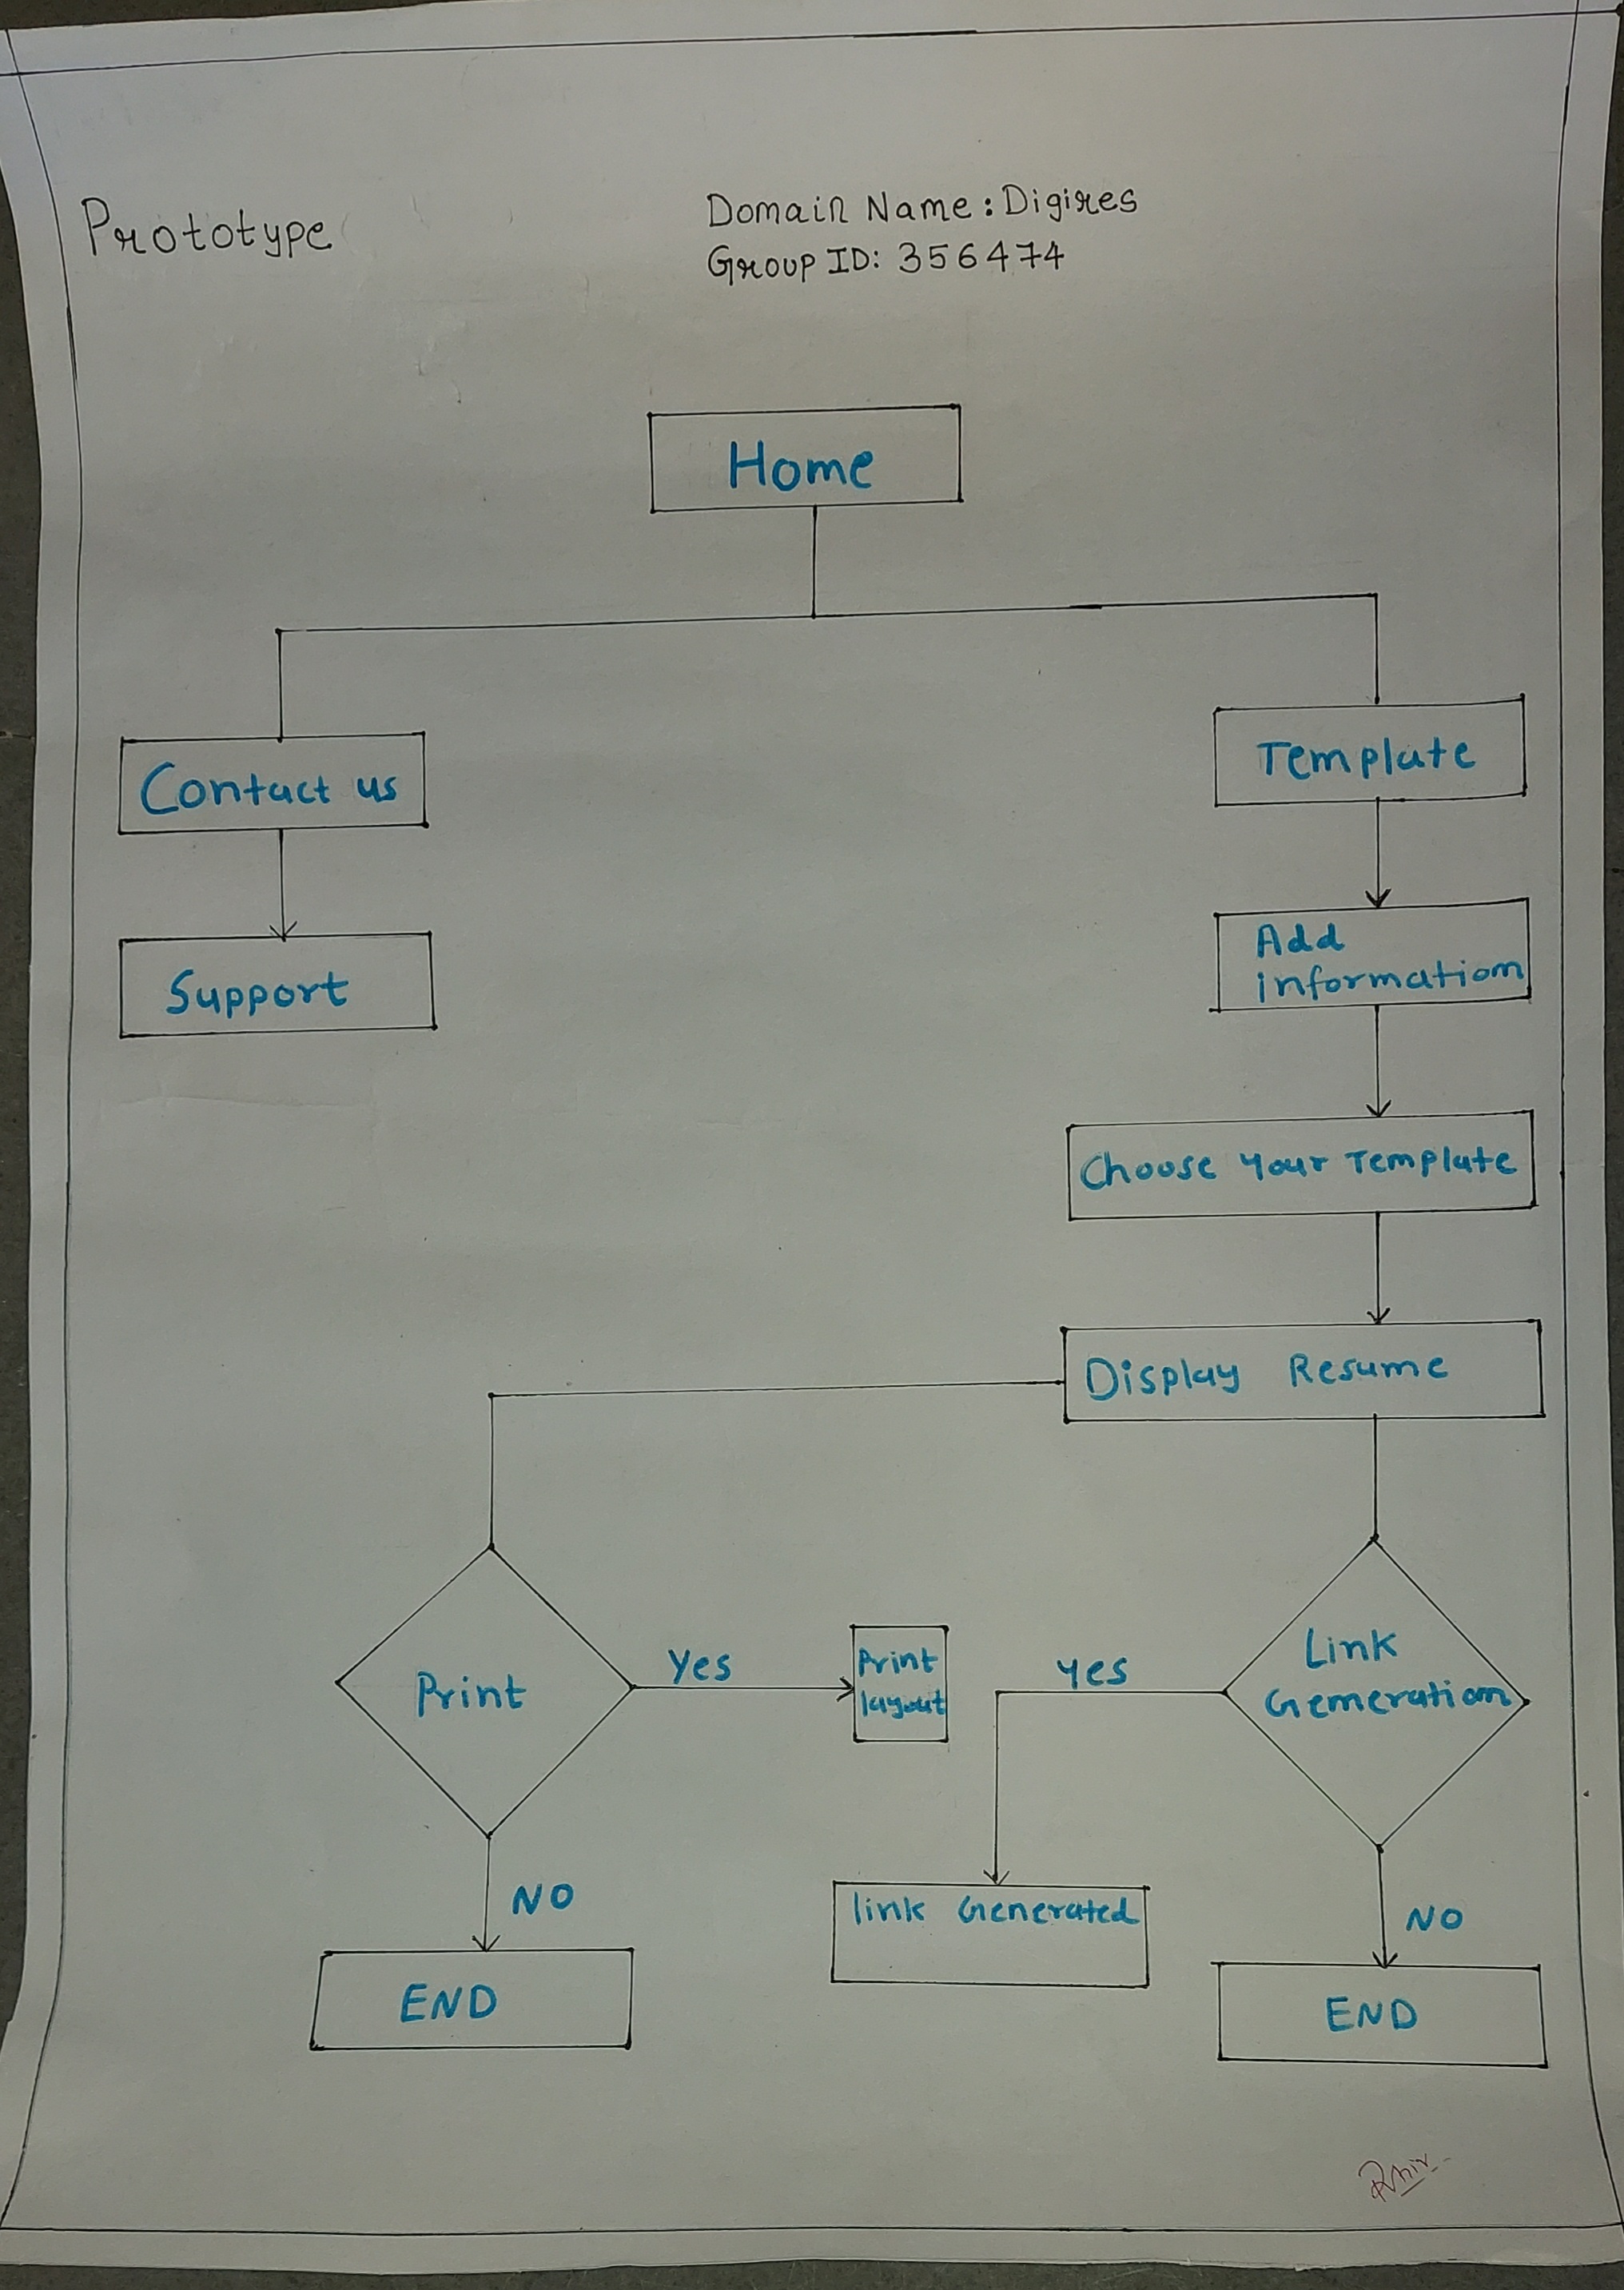 Prototype
Domain Name: Digires
Group ID: 356474
Home
Contact us
Template
Support
Add
information
Choose Your Template
Display Resume
Print
Yes
Print
layout
Yes
Link
Generation
NO
link Generated
NO
END
END